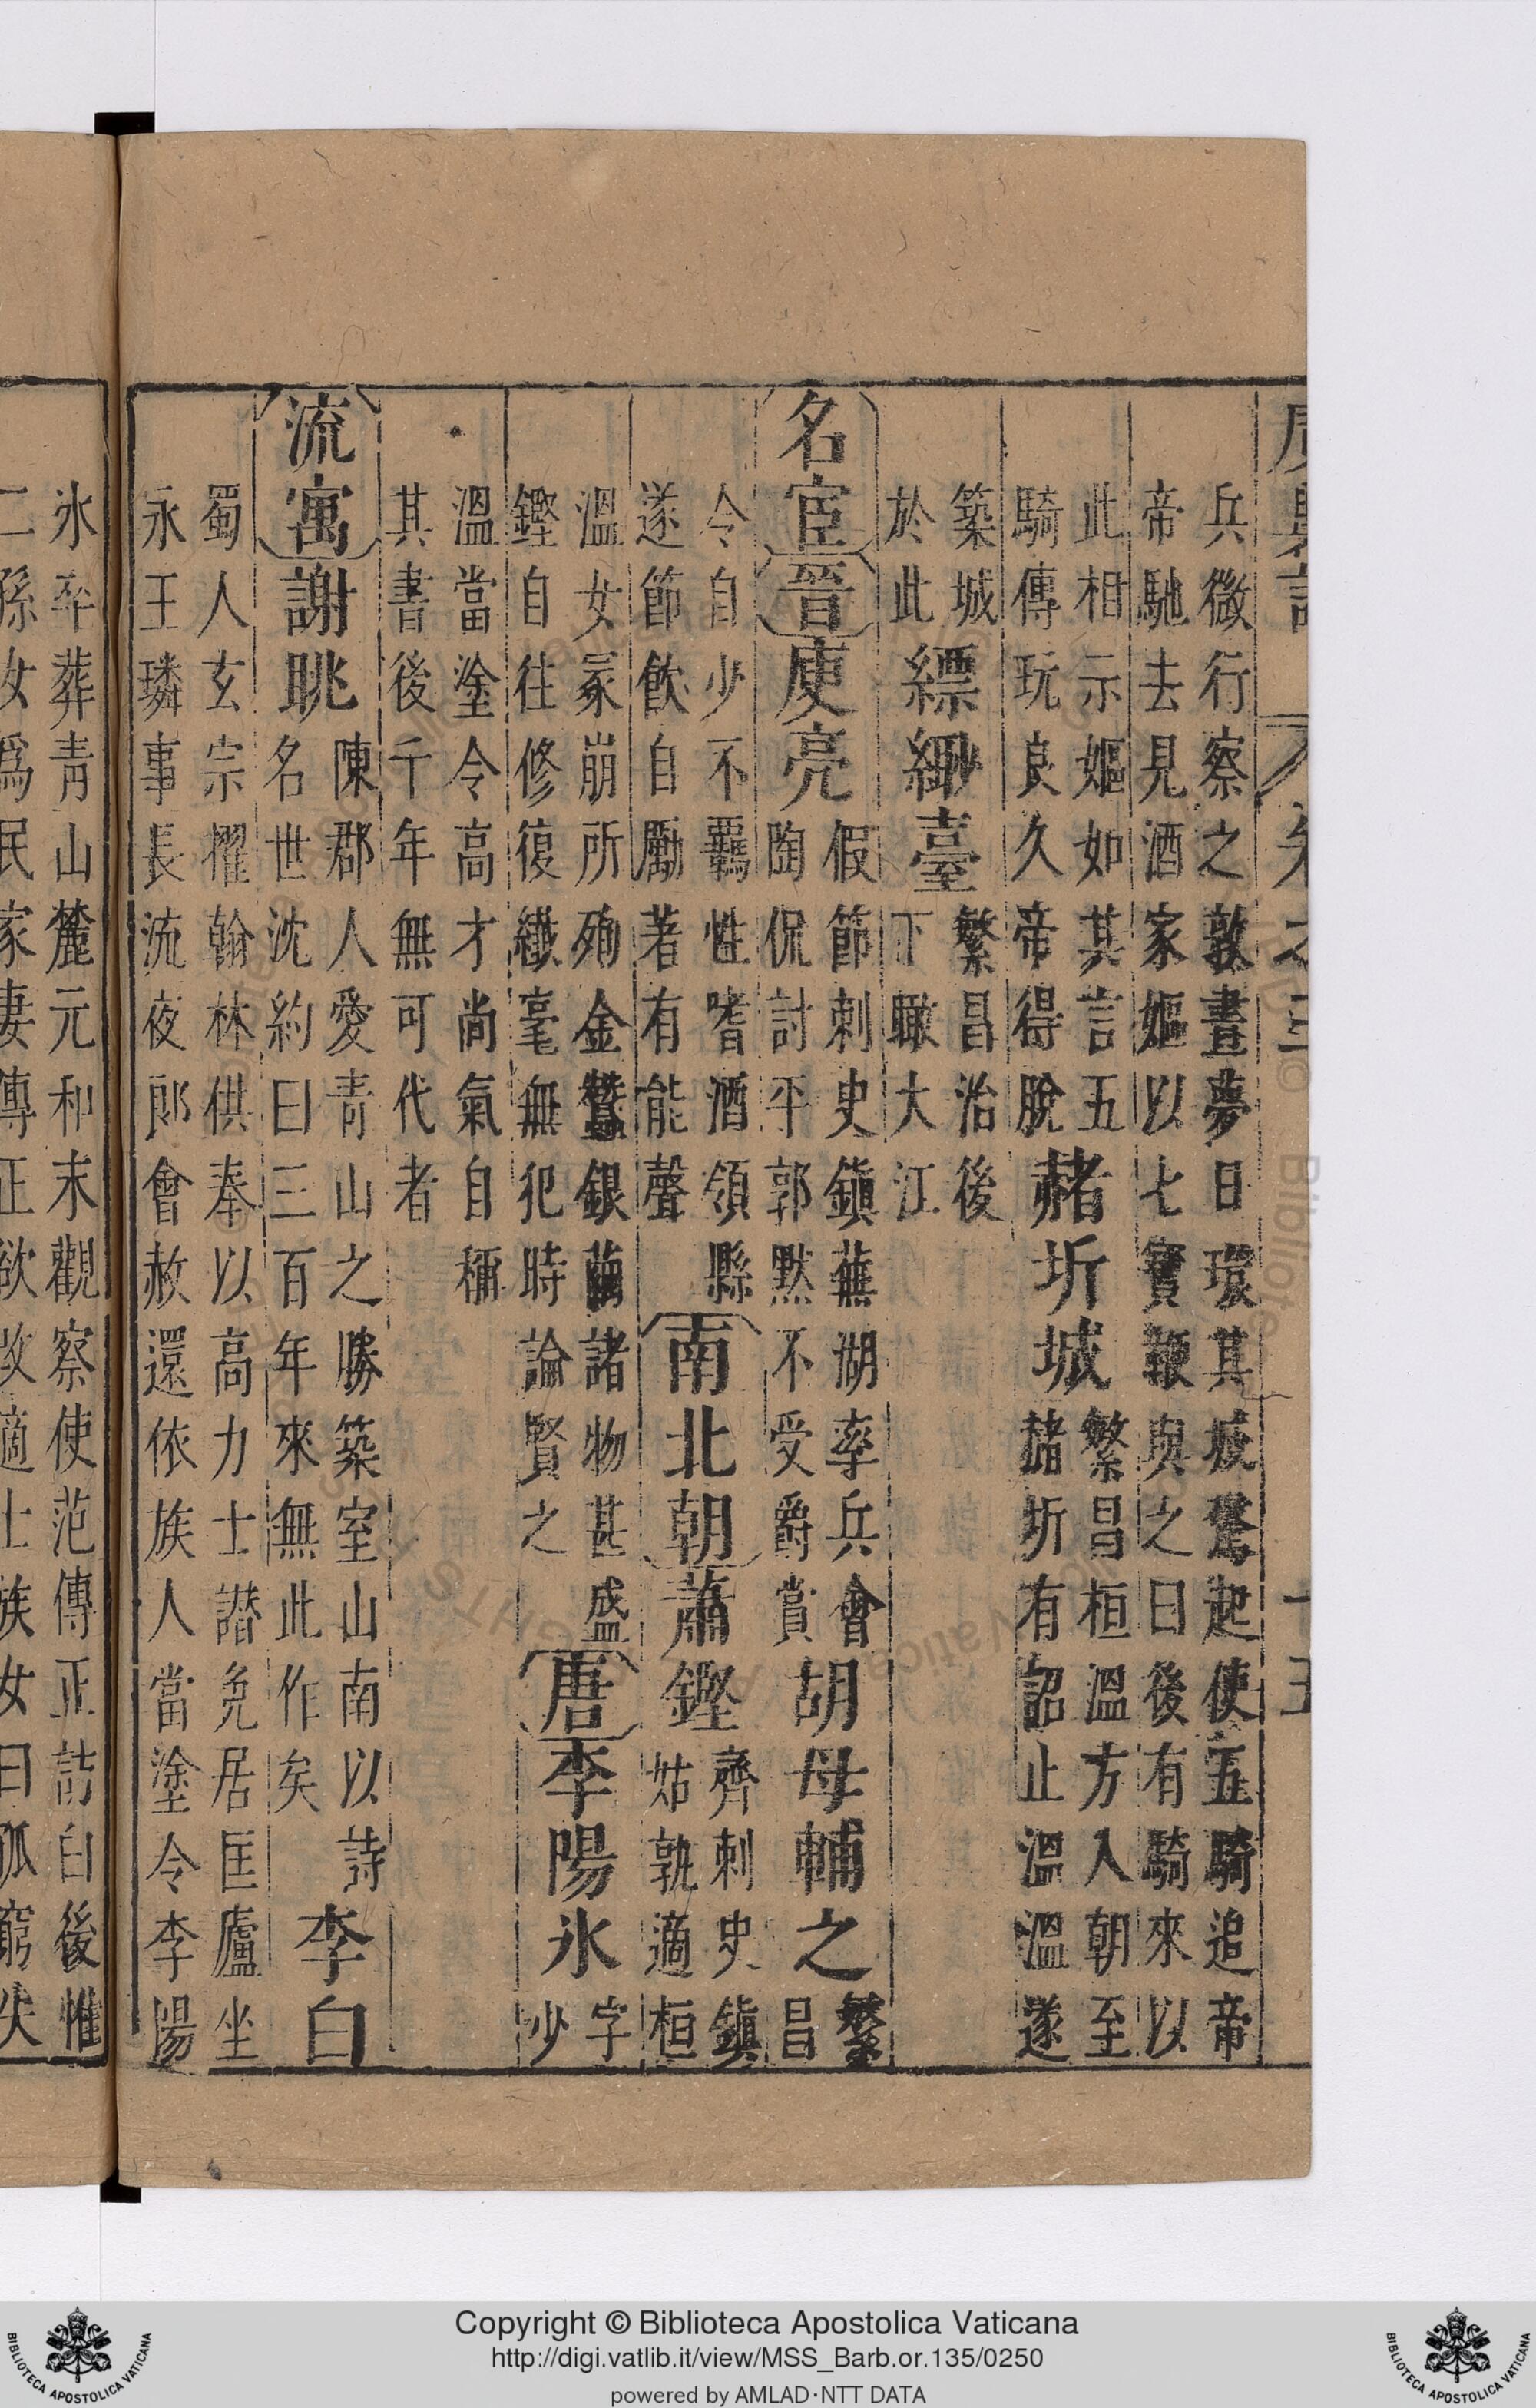 兵微行察之敦晝夢日環其城驚起使五騎追帝
帝馳去見酒家嫗以七寶鞭與之曰後有騎來以
此相示嫗如其言五
騎傳玩良久帝得脫
赭圻城
繁昌桓溫方入朝至
赭圻有詔止溫溫遂
築城
於此
縹緲臺
繁昌治後
下瞰大江
名宦
晉
庾亮
假節刺史鎮蕪湖率兵會
陶侃討平郭默不受爵賞
胡母輔之
繁
昌
令自少不羈性嗜酒領縣
遂節飲自勵著有能聲
南北朝
蕭鏗
齊刺史鎮
姑孰適桓
溫女冢崩所殉金蠶銀繭諸物甚盛
鏗自往修復纖毫無犯時論賢之
唐
李陽氷
字
少
溫當塗令高才尚氣自稱
其書後千年無可代者
流寓
謝眺
陳郡人愛青山之勝築室山南以詩
名世沈約曰三百年來無此作矣
李白
蜀人玄宗擢翰林供奉以高力士譖免居匡廬坐
永王璘事長流夜郎會赦還依族人當塗令李陽
氷卒葬青山麓元和末觀察使范傳正訪白後惟
二孫女爲民家妻傳正欲改適士族女曰孤窮失
Copyright © Biblioteca Apostolica Vaticana
http://digi.vatlib.it/view/MSS_Barb.or.135/0250
powered by AMLAD·NTT DATA
BIBLIOTECA APOSTOLICA VATICANA
BIBLIOTECA APOSTOLICA VATICANA